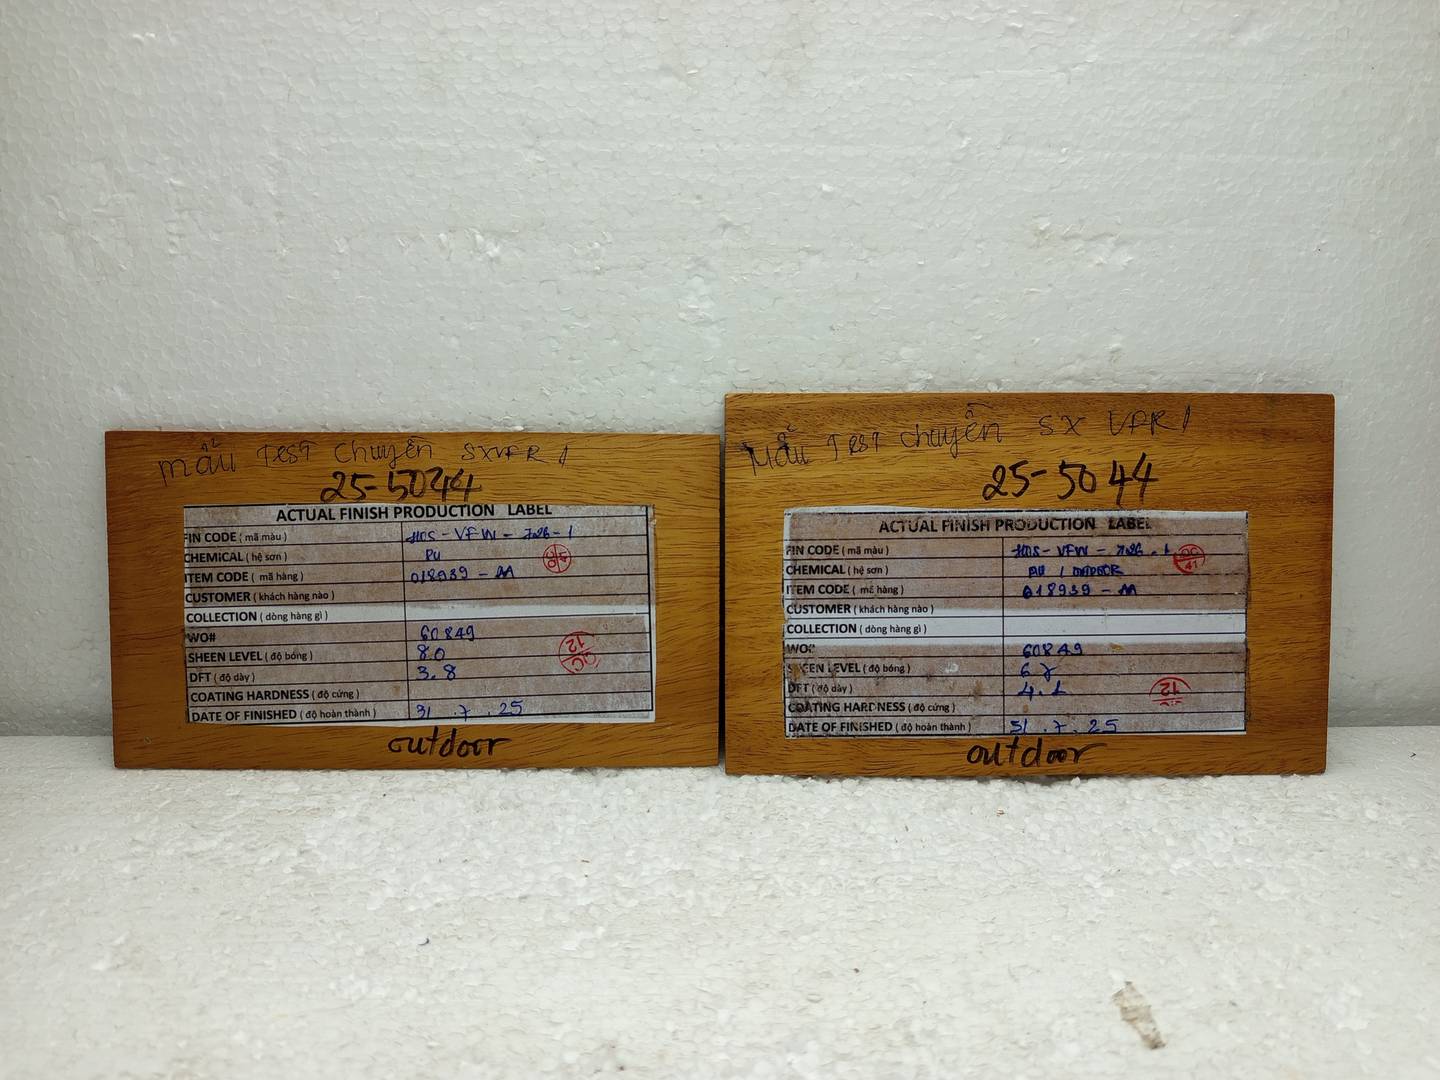 Mẫu Test Chuyền SX VFR 1
25-5044
ACTUAL FINISH PRODUCTION LABEL
FIN CODE ( mã màu )
CHEMICAL ( hệ sơn ) PU
ITEM CODE ( mã hàng ) 018939 - AA
CUSTOMER ( khách hàng nào )
COLLECTION ( dòng hàng gì )
WO# 60849
SHEEN LEVEL ( độ bóng ) 8.0
DFT ( độ dày ) 3.8
COATING HARDNESS ( độ cứng )
DATE OF FINISHED ( độ hoàn thành ) 31 . 7 . 25
QC 12
outdoor
Mẫu Test Chuyền SX VFR 1
25-5044
ACTUAL FINISH PRODUCTION LABEL
FIN CODE ( mã màu )
QC 41
CHEMICAL ( hệ sơn ) PU /
ITEM CODE ( mã hàng ) 018939 - AA
CUSTOMER ( khách hàng nào )
COLLECTION ( dòng hàng gì )
WO# 60849
SHEEN LEVEL ( độ bóng )
DFT ( độ dày ) 4.1
COATING HARDNESS ( độ cứng )
DATE OF FINISHED ( độ hoàn thành ) 31 . 7 . 25
12
outdoor